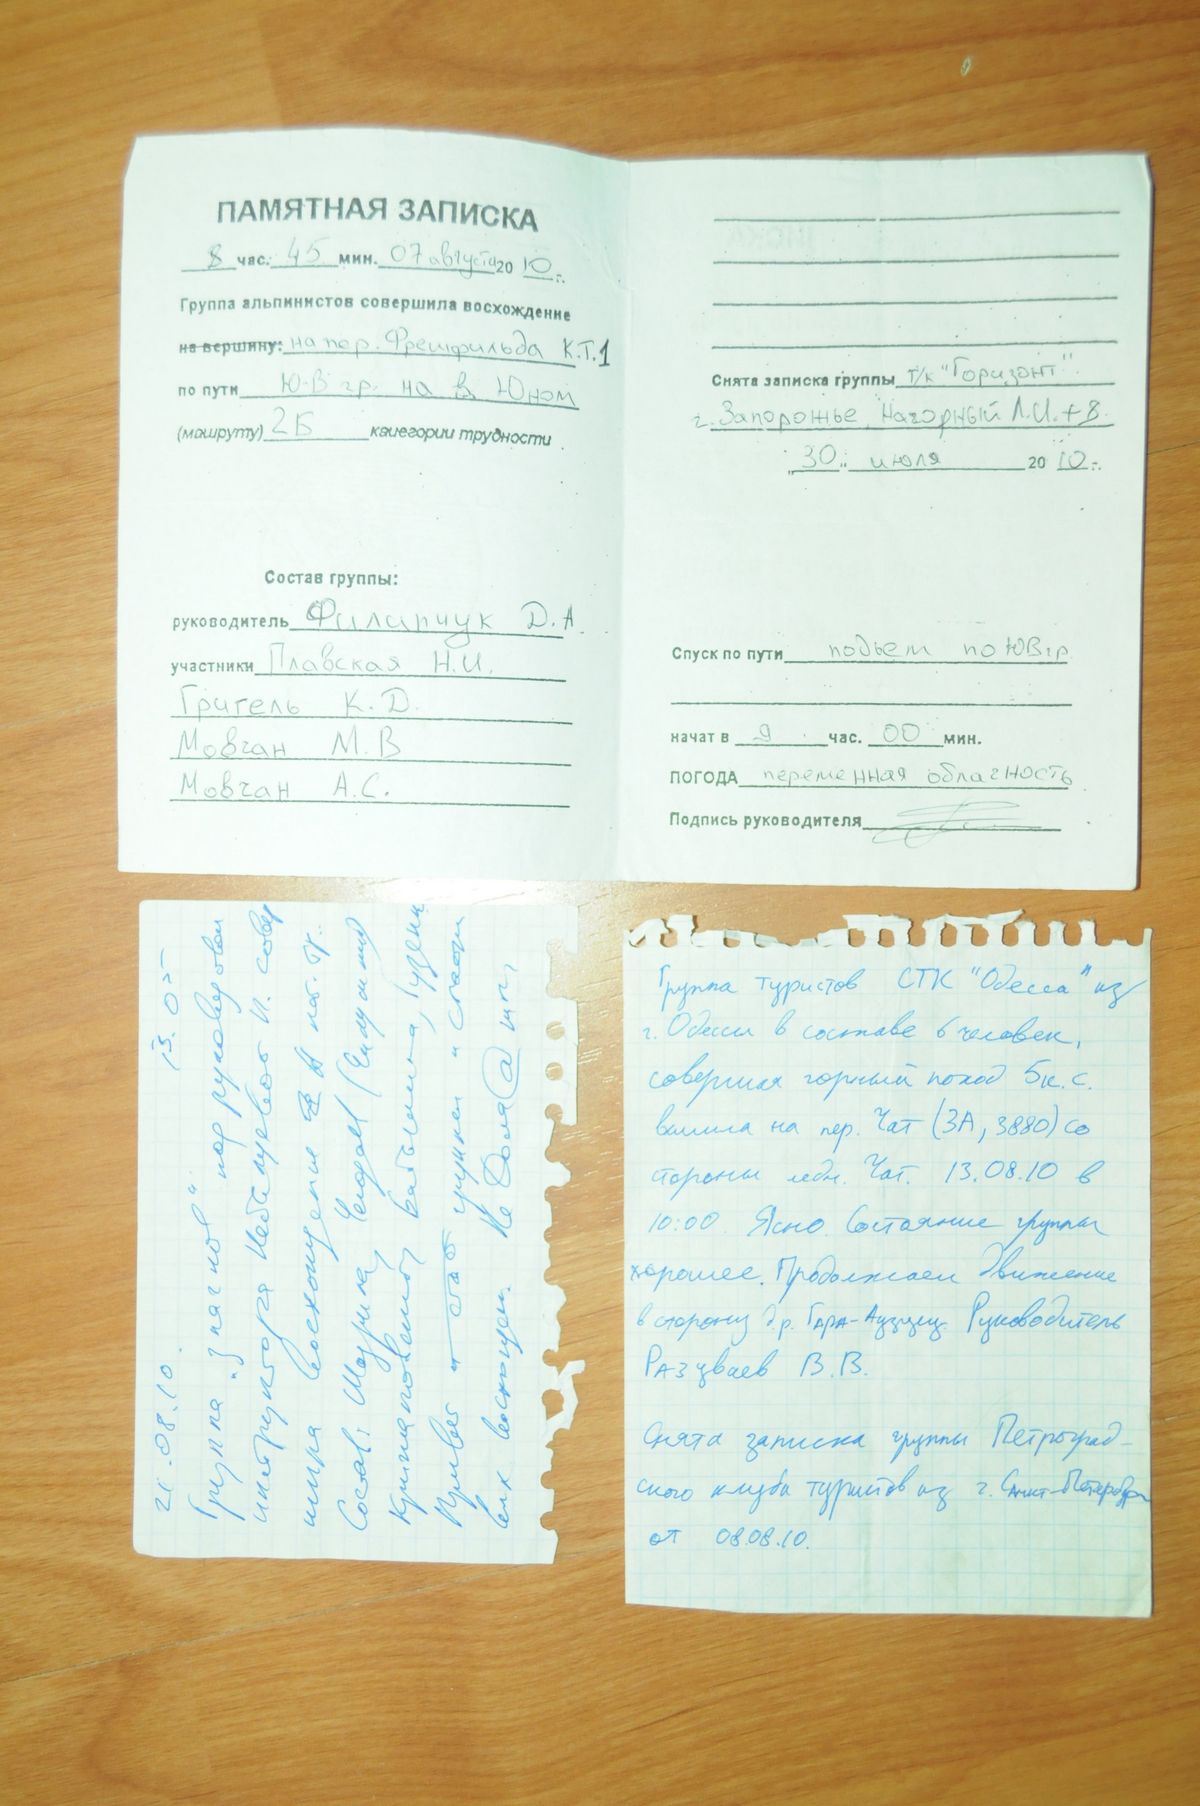 ПАМЯТНАЯ ЗАПИСКА
8 час. 45 мин. 07 августа 20 10 г.
Группа альпинистов совершила восхождение
на вершину: на пер. Фрешфильда К.Т.1
по пути Ю-В гр. на в. Юном
(маршруту) 2Б категории трудности
Состав группы:
руководитель Филипчук Д.А
участники Плавская Н.И.
Григель К.Д.
Мовчан М.В
Мовчан А.С.
Снята записка группы т/к "Горизонт"
г. Запорожье, Нагорный Л.И. + 8.
"30" июля 20 10 г.
Спуск по пути подьем по ЮВ гр.
начат в 9 час. 00 мин.
ПОГОДА переменная облачность
Подпись руководителя
21.08.10. 13.05
Группа "3 пягной" под руководвом
инструктора И. совер
шира восхождение на по. гр.
Состав: Мазурика,
Привет группам и спасти
всех восходящ. Не
Группа туристов СТК "Одесса" из
г. Одессы в составе 6 человек,
совершая горный поход 5 к.с.
вышла на пер. Чат (3А, 3880) со
стороны ледн. Чат. 13.08.10 в
10:00. Ясно. Состояние группы
хорошее. Продолжаем движение
в сторону д.р. Гара-Аузусу. Руководитель
Разуваев В.В.
Снята записка группы Петроград-
ского клуба туристов из г. Санкт-Петербург
от 08.08.10.